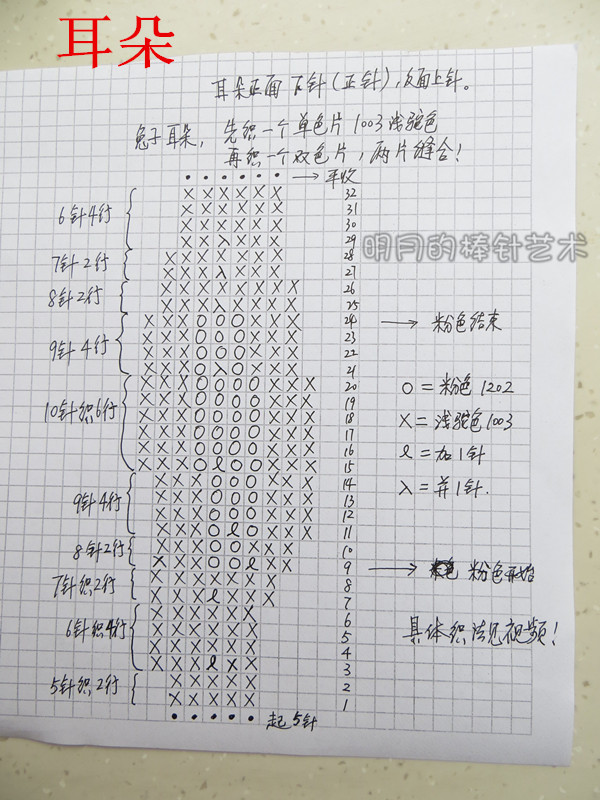 耳朵
耳朵正面下针(正针),反面上针。
兔子耳朵,先织一个单色片1003浅驼色
再织一个双色片,两片缝合!
• • • • • • → 平收
6针4行
7针2行
8针2行
9针4行
10针织6行
9针4行
8针2行
7针织2行
6针织4行
5针织2行
X X X X X X 32
X X X X X X 31
X X X X X X 30
X X λ X X X 29
X X X X X X X 28
X X X λ X X X 27
X X X X X X X X 26
X X X λ X X X X 25
X X X O O O X X X 24 → 粉色结束
X X X O O O X X X 23
X X X O O O X X X 22
X X X O λ O X X X 21
X X X O O O O X X X 20
X X X O O O O X X X 19
X X X O O O O X X X 18
X X X O O O O X X X 17
X X X O O O O X X X 16
X X X O ℓ O O X X X 15
X X X O O O X X X 14
X X X O O O X X X 13
X X X O O O X X X 12
X X X O ℓ O X X X 11
X X X O O X X X 10
X X X O O ℓ X X 9 → 粉色开始
X X X X X X X 8
X X X ℓ X X X 7
X X X X X X 6
X X X X X X 5
X X X X X X 4
X X X ℓ X X 3
X X X X X 2
X X X X X 1
• • • • • 起5针
O=粉色1202
X=浅驼色1003
ℓ=加1针
λ=并1针.
具体织法见视频!
明月的棒针艺术